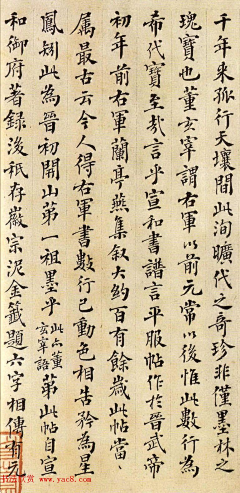 千年来孤行天壤間此洵曠代之奇珍非僅墨林之
瑰寶也董玄宰謂右軍以前元常以後惟此數行為
希代寶至哉言乎宣和書譜言平服帖作於晉武帝
初年前右軍蘭亭燕集叙大約百有餘歲此帖當
属最古云今人得右軍書數行已動色相告矜為星
鳳矧此為晉初開山第一祖墨乎此亦董玄宰語第此帖自宣
和御府著録後祇存徽宗泥金籤題六字相傳有元
书法欣赏 www.yac8.com